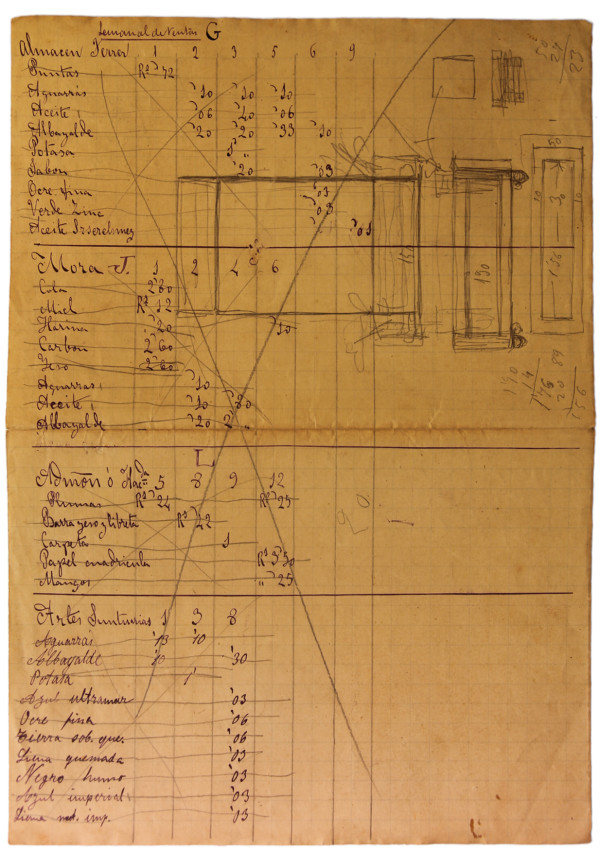 Semanal de Ventas G
Almacen Ferrer 1 2 3 5 6 9
Puntas Rs 72
Aguarrás 10 10 10
Aceite 06 20 06
Albayalde 20 20 33 10
Potasa
Jabon 20 03
Ocre fina 03
Verde Zinc 03
Aceite 01
Mora J. 1 2 4 6
Cola 2 80
Miel Rs 12
Harina 20 10
Carbon 2 60
Yeso 2 60
Aguarras 10
Aceite 10 80
Albayalde 20 2 "
L
Admōn ó 5 8 9 12
Plumas Rs 24 Rs 25
Barra yeso y libreta Rs 22
Carpeta 1
Papel cuadricula Rs 5 50
Mangos " 25
Artes Suntuarias 1 3 8
Aguarrás 13 10
Albayalde 10 30
Potasa 1
Azul ultramar 03
Ocre fina 06
Tierra sob. que. 06
Siena quemada 03
Negro humo 03
Azul imperial 03
Siena nat. imp. 03
150
190
50
20